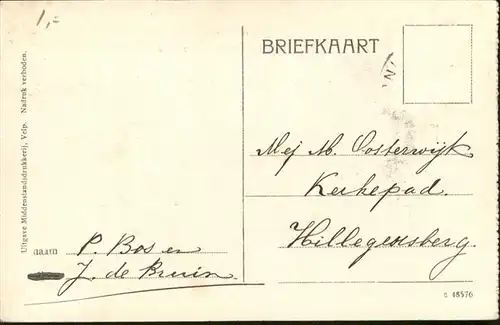 1,-
BRIEFKAART
Uitgave Middenstandsdrukkerij, Velp. Nadruk verboden.
Mej M. Oosterwijk
Kerkepad.
Hillegersberg.
naam P. Bos en
J. de Bruin.
c 48576